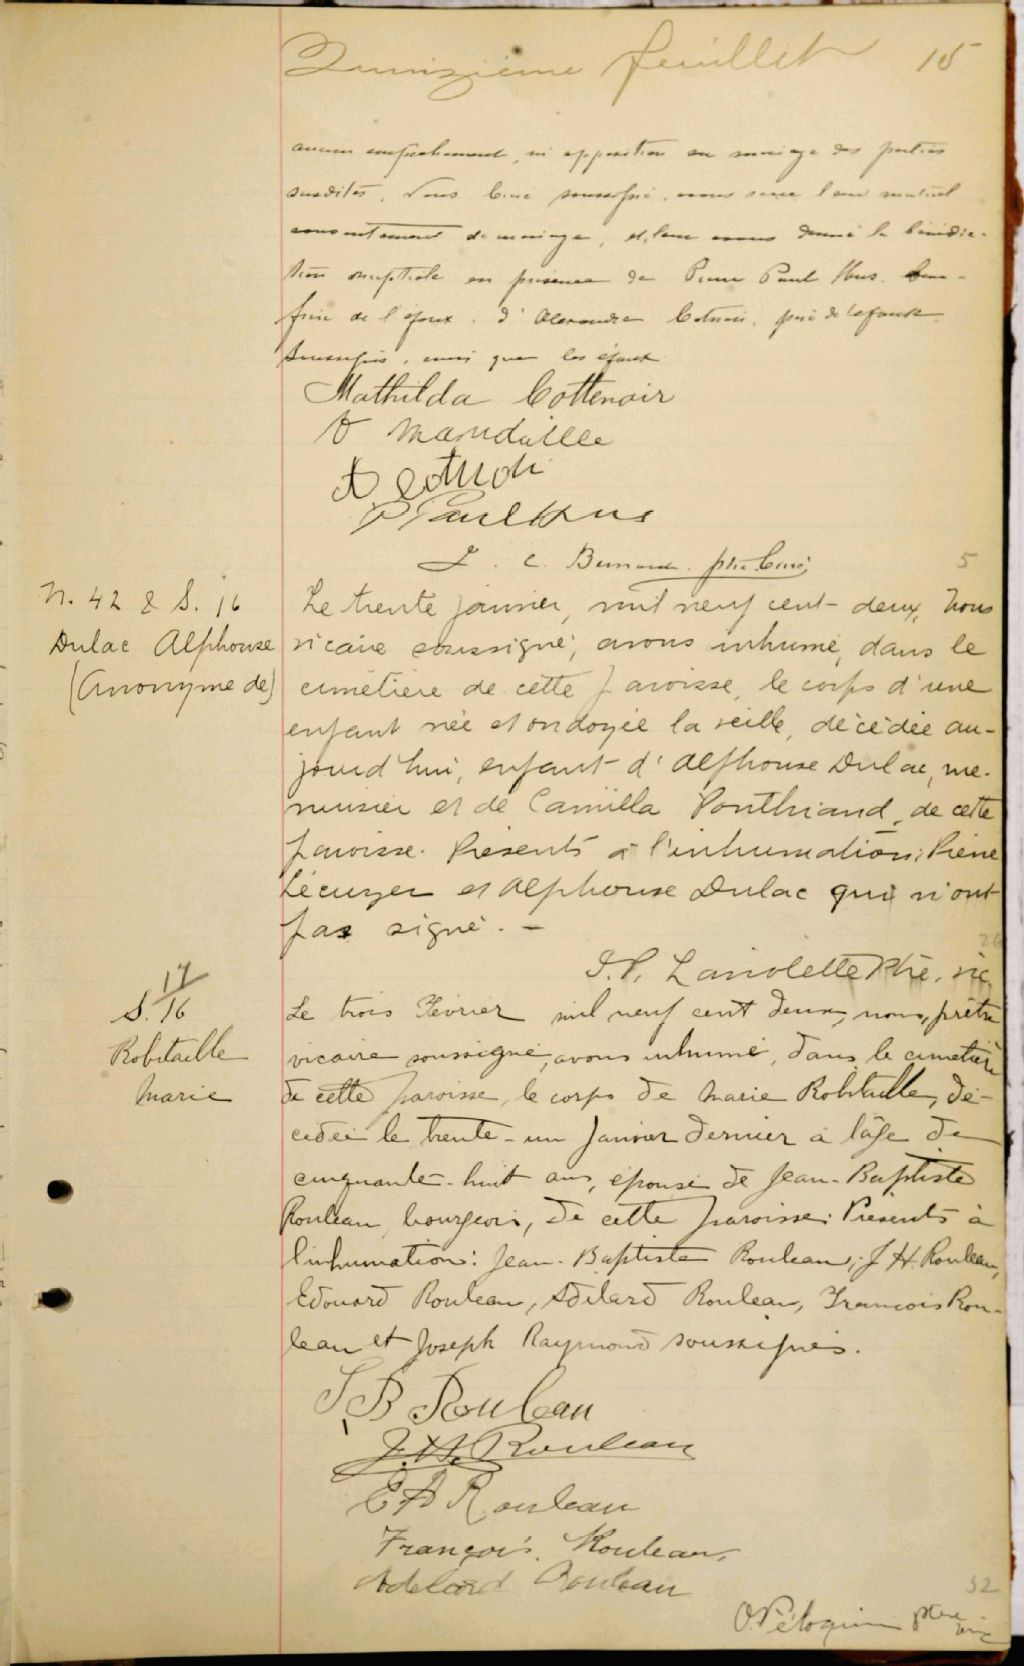 Quinzième feuillet 15
aucun empêchement, ni opposition au mariage des parties
susdites, Nous Curé soussigné, avons reçu leur mutuel
consentement de mariage, et leur avons donné la bénédic-
tion nuptiale en présence de Pierre Paul Hus, beau-
frère de l'époux, d'Alexandre Cotnoir, père de l'épouse
soussignés, ainsi que les époux
Mathilda Cottenoir
Mandeville
A Cotnoir
P Paul Hus
L. C. Bernard. ptre Curé
5
N. 42 & S. 16
Dulac Alphonse
(Anonyme de)
Le trente janvier, mil neuf cent-deux, Nous
vicaire soussigné, avons inhumé, dans le
cimetière de cette paroisse, le corps d'une
enfant née et ondoyée la veille, décédée au-
jourd'hui, enfant d'Alphonse Dulac, me-
nuisier et de Camilla Ponthriand, de cette
paroisse. Présents à l'inhumation: Pierre
Lécuyer et Alphonse Dulac qui n'ont
pas signé. -
26
J.P. Lariolette Ptre. vic
17
S. 16
Robitaille
Marie
Le trois Février mil neuf cent deux, nous, prêtre
vicaire soussigné, avons inhumé, dans le cimetière
de cette paroisse, le corps de Marie Robitaille, dé-
cédée le trente-un Janvier dernier à l'âge de
cinquante-huit ans, épouse de Jean-Baptiste
Rouleau bourgeois, de cette paroisse. Présents à
l'inhumation: Jean-Baptiste Rouleau, J H. Rouleau,
Edouard Rouleau, Adélard Rouleau, François Rou-
leau et Joseph Raymond soussignés.
J B Rouleau
J. H. Rouleau
Ed Rouleau
François Rouleau
Adelard Rouleau
32
O. Péloquin ptre vic